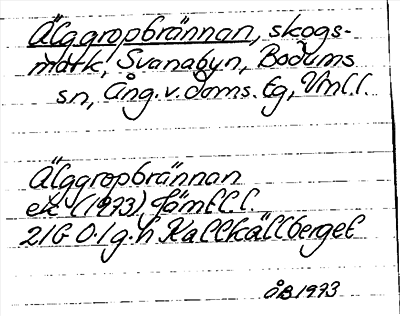 Älggropbrännan, skogs-
mark, Svanabyn, Bodums
sn, Ång. v. doms. tg, Vnl. l.
Älggropbrännan
ek (1973) Jämtl. l.
21G 0-1 g-h Kallkällberget
ÅB 1973